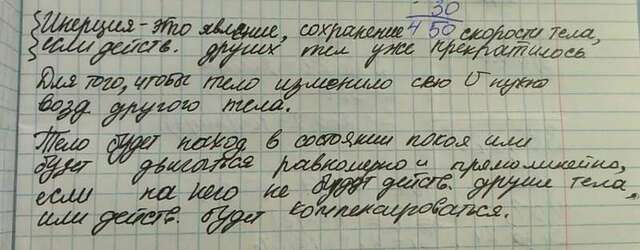 30
Инерция - это явление, сохранение 4 50 скорости тела,
если действ. других тел уже прекратилось
Для того, чтобы тело изменило свю υ нужно
возд другого тела.
Тело будет наход в состоянии покоя или
будет двигаться равномерно и прямолинейно,
если на него не будут действ. другие тела,
или действ. будет компенсироваться.